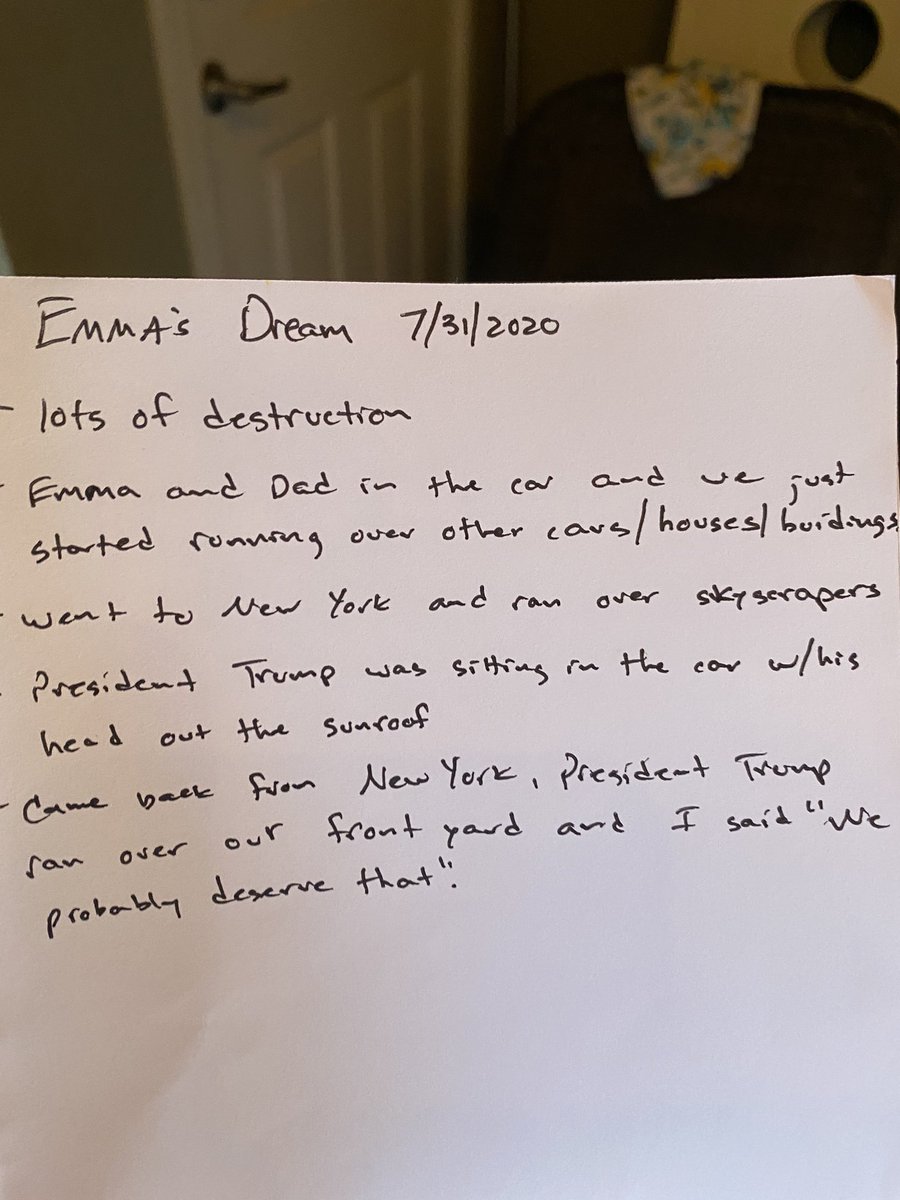 EMMA's Dream 7/31/2020
- lots of destruction
- Emma and Dad in the car and we just
started running over other cars/houses/buidings
- went to New York and ran over skyscrapers
- President Trump was sitting in the car w/his
head out the sunroof
- Came back from New York, President Trump
ran over our front yard and I said "We
probably deserve that".